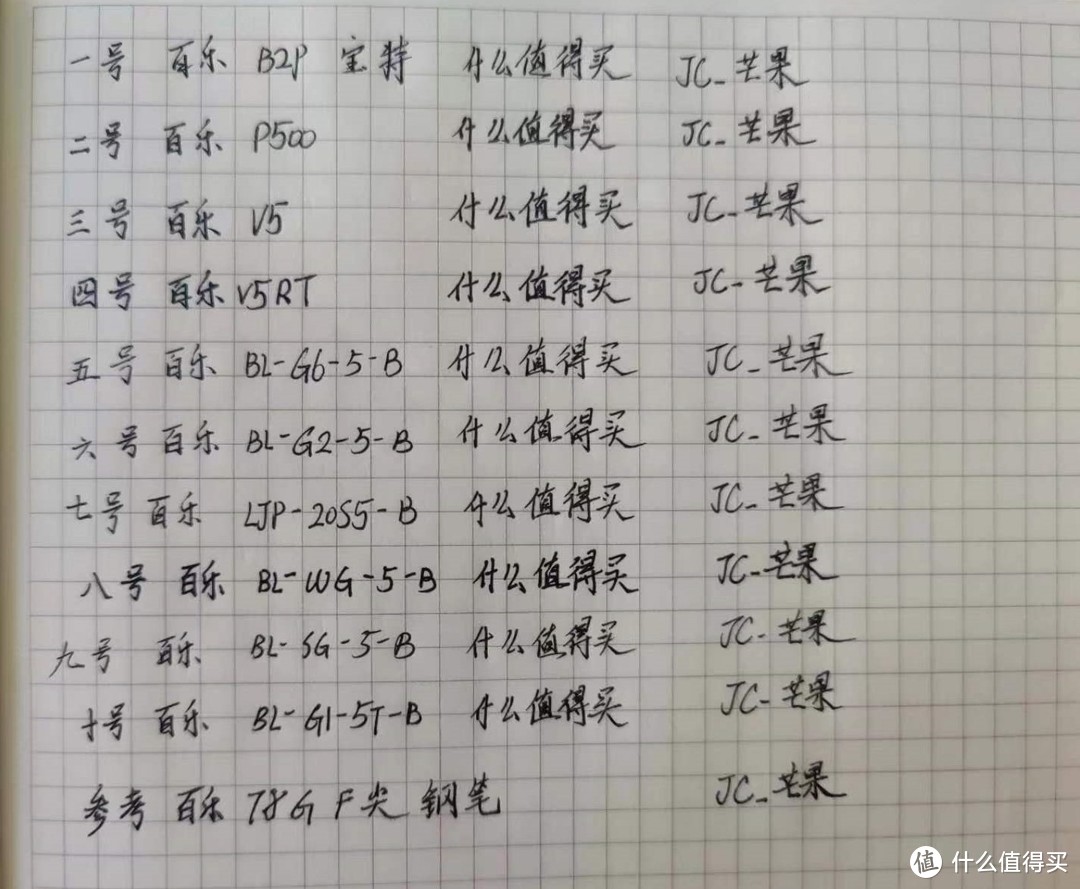 一号 百乐 B2P 宝特 什么值得买 JC_芒果
二号 百乐 P500 什么值得买 JC_芒果
三号 百乐 V5 什么值得买 JC_芒果
四号 百乐 V5RT 什么值得买 JC_芒果
五号 百乐 BL-G6-5-B 什么值得买 JC_芒果
六号 百乐 BL-G2-5-B 什么值得买 JC_芒果
七号 百乐 LJP-20S5-B 什么值得买 JC_芒果
八号 百乐 BL-WG-5-B 什么值得买 JC_芒果
九号 百乐 BL-SG-5-B 什么值得买 JC_芒果
十号 百乐 BL-G1-5T-B 什么值得买 JC_芒果
参考 百乐 78G F尖 钢笔 JC_芒果
值 什么值得买